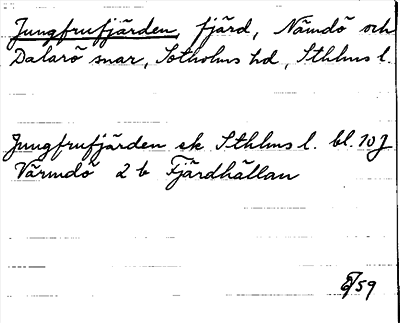 Jungfrufjärden, fjärd, Nämdö och
Dalarö snar, Sotholms hd, Sthlms l.
Jungfrufjärden ek Sthlms l. bl. 10J
Värmdö 2 b Fjärdhällan
/59